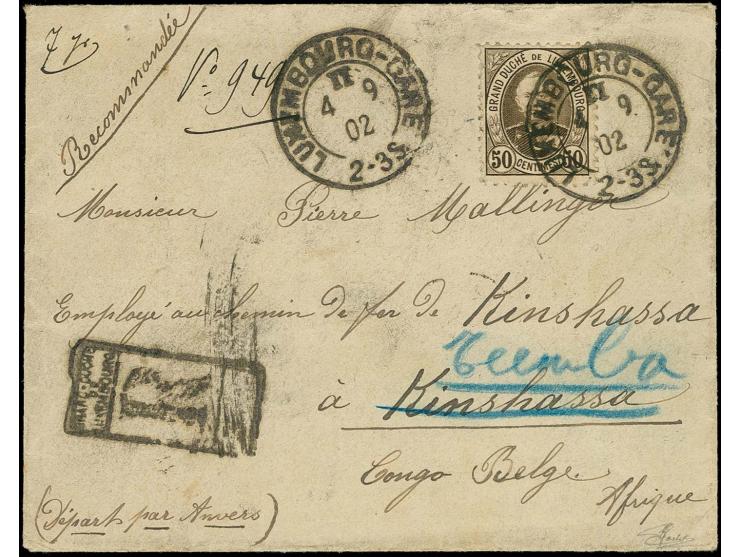 7 gr
Recommandée
No. 949
LUXEMBOURG-GARE
II
4 9
02
2-3S
GRAND DUCHÉ DE LUXEMBOURG
50 CENTIMES 50
LUXEMBOURG-GARE
II
4 9
02
2-3S
Monsieur Pierre Mallinger
Employé au chemin de fer de Kinshassa
à Kinshassa
Congo Belge.
Afrique
GRAND-DUCHÉ
DE
LUXEMBOURG
(Départ par Anvers)